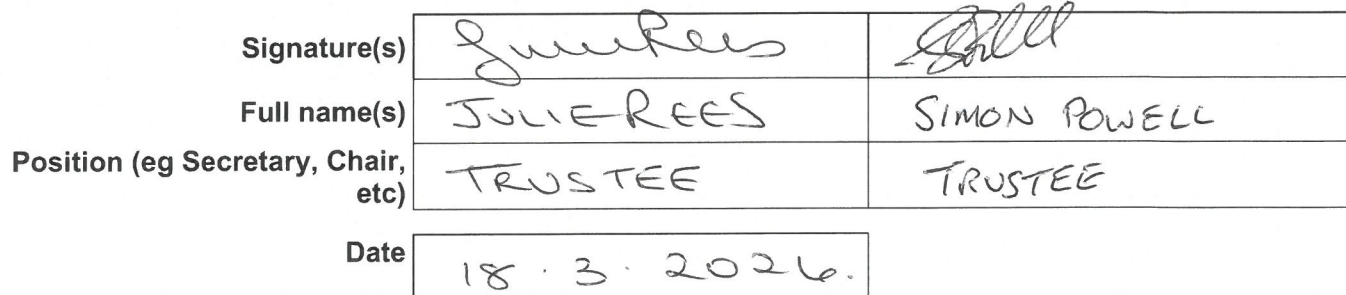 Signature(s)
Full name(s) JULIE REES SIMON POWELL
Position (eg Secretary, Chair, etc) TRUSTEE TRUSTEE
Date 18.3.2026.